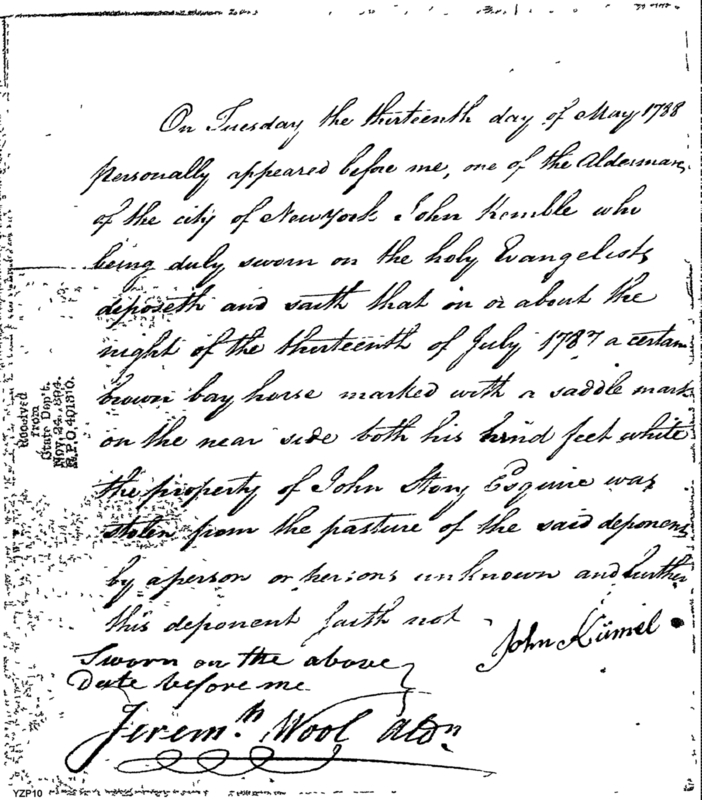 On Tuesday the thirteenth day of May 1788
Personally appeared before me, one of the Aldermans
of the city of New York John Kemble who
being duly sworn on the holy Evangelists
deposeth and saith that on or about the
night of the thirteenth of July 1787 a certain
brown bay horse marked with a saddle mark
on the near side both his hind feet white
the property of John Story Esquire was
stolen from the pasture of the said deponent
by a person or persons unknown and further
this deponent saith not
John Kümel
Sworn on the above
Date before me
Jerem.h Wool Aldn
Received
from
State Dep't.
Nov. 24, 1894.
R.P.O. 401310.
YZP10